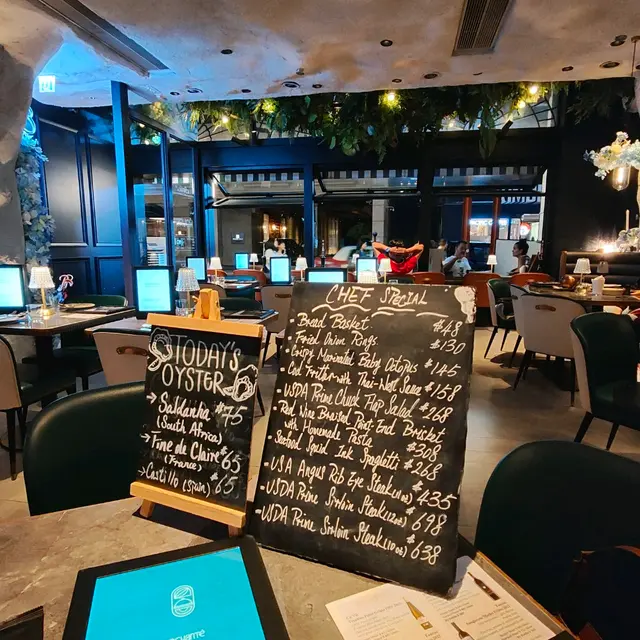 TODAY'S
OYSTER
→ Saldanha $75
(South Africa)
→ Fine de Claire $65
(France)
→ Castillo (Spain) $65
CHEF SPECIAL
- Bread Basket $48
- Fried Onion Rings $130
- Crispy Marinated Baby Octopus $145
- Cod Fritter with Thai-Nam Sauce $158
- USDA Prime Chuck Flap Salad $268
- Red Wine Braised Point End Brisket
with Homemade Pasta $308
- Seafood Squid Ink Spaghetti $268
- USA Angus Rib Eye Steak $435
- USDA Prime Sirloin Steak $698
- USDA Prime Sirloin Steak (10oz) $638